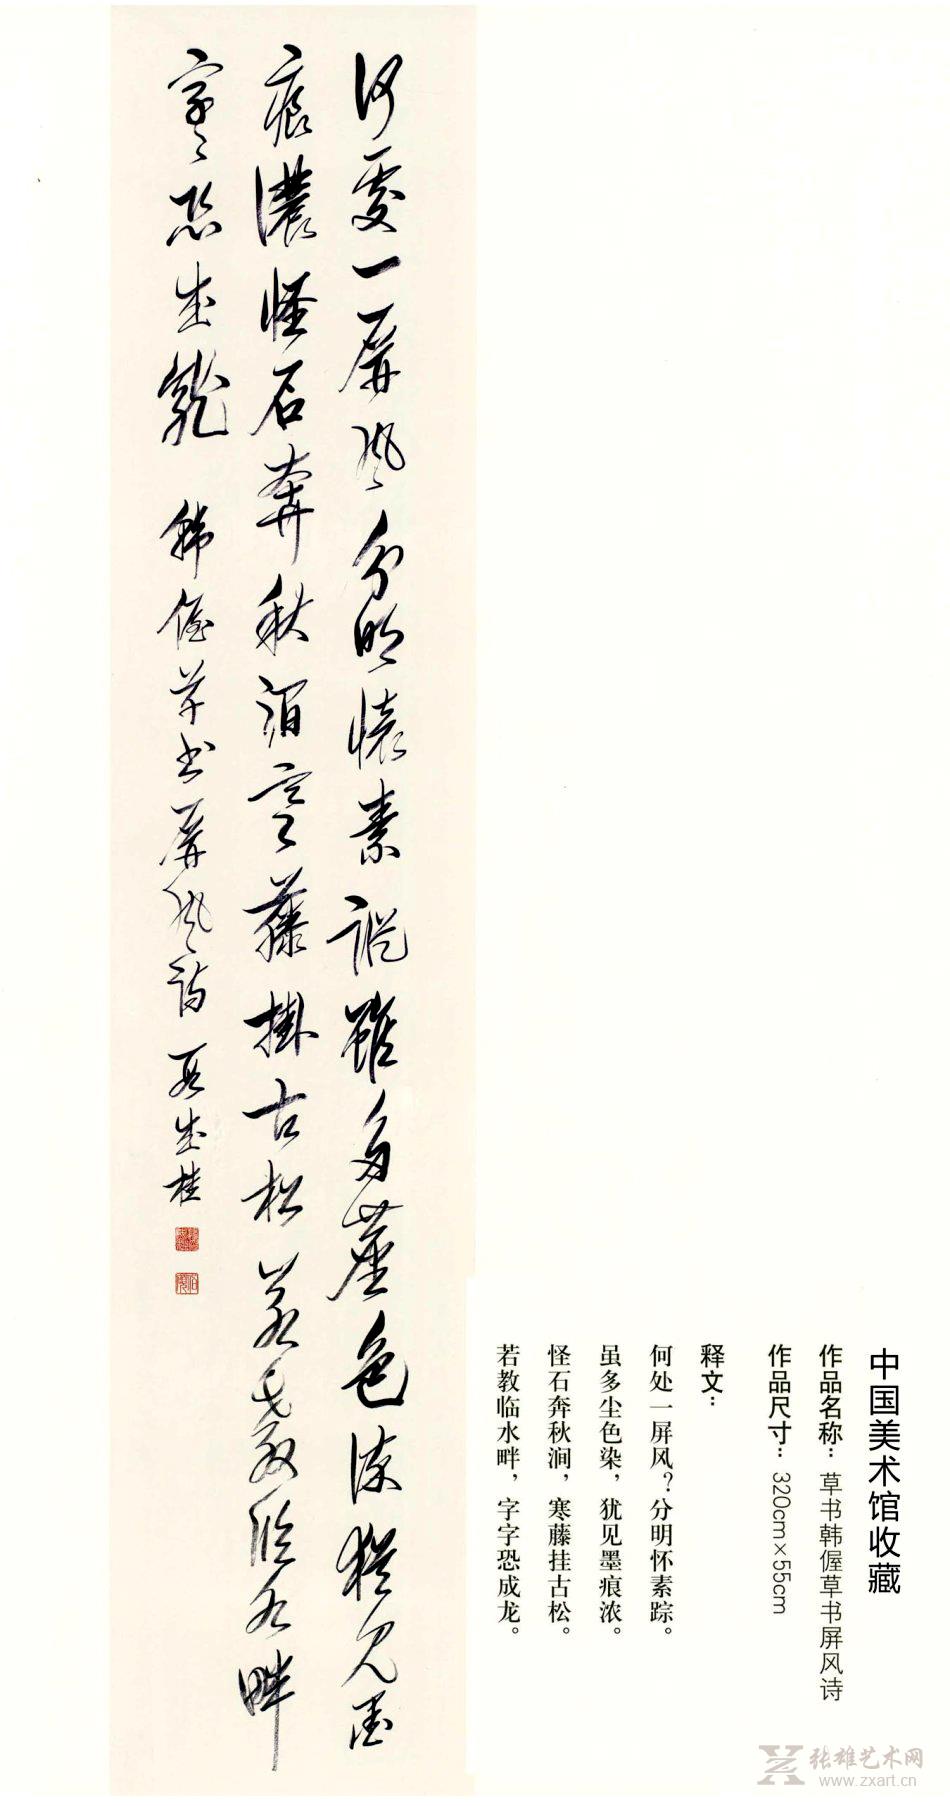 何處一屏風分明懷素蹤雖多塵色染猶見墨
痕濃怪石奔秋澗寒藤掛古松若教臨水畔
字字恐成龍 韓偓草書屏風詩 段成桂
中国美术馆收藏
作品名称：草书韩偓草书屏风诗
作品尺寸：320cm×55cm
释文：
何处一屏风？分明怀素踪。
虽多尘色染，犹见墨痕浓。
怪石奔秋涧，寒藤挂古松。
若教临水畔，字字恐成龙。
张雄艺术网
www.zxart.cn